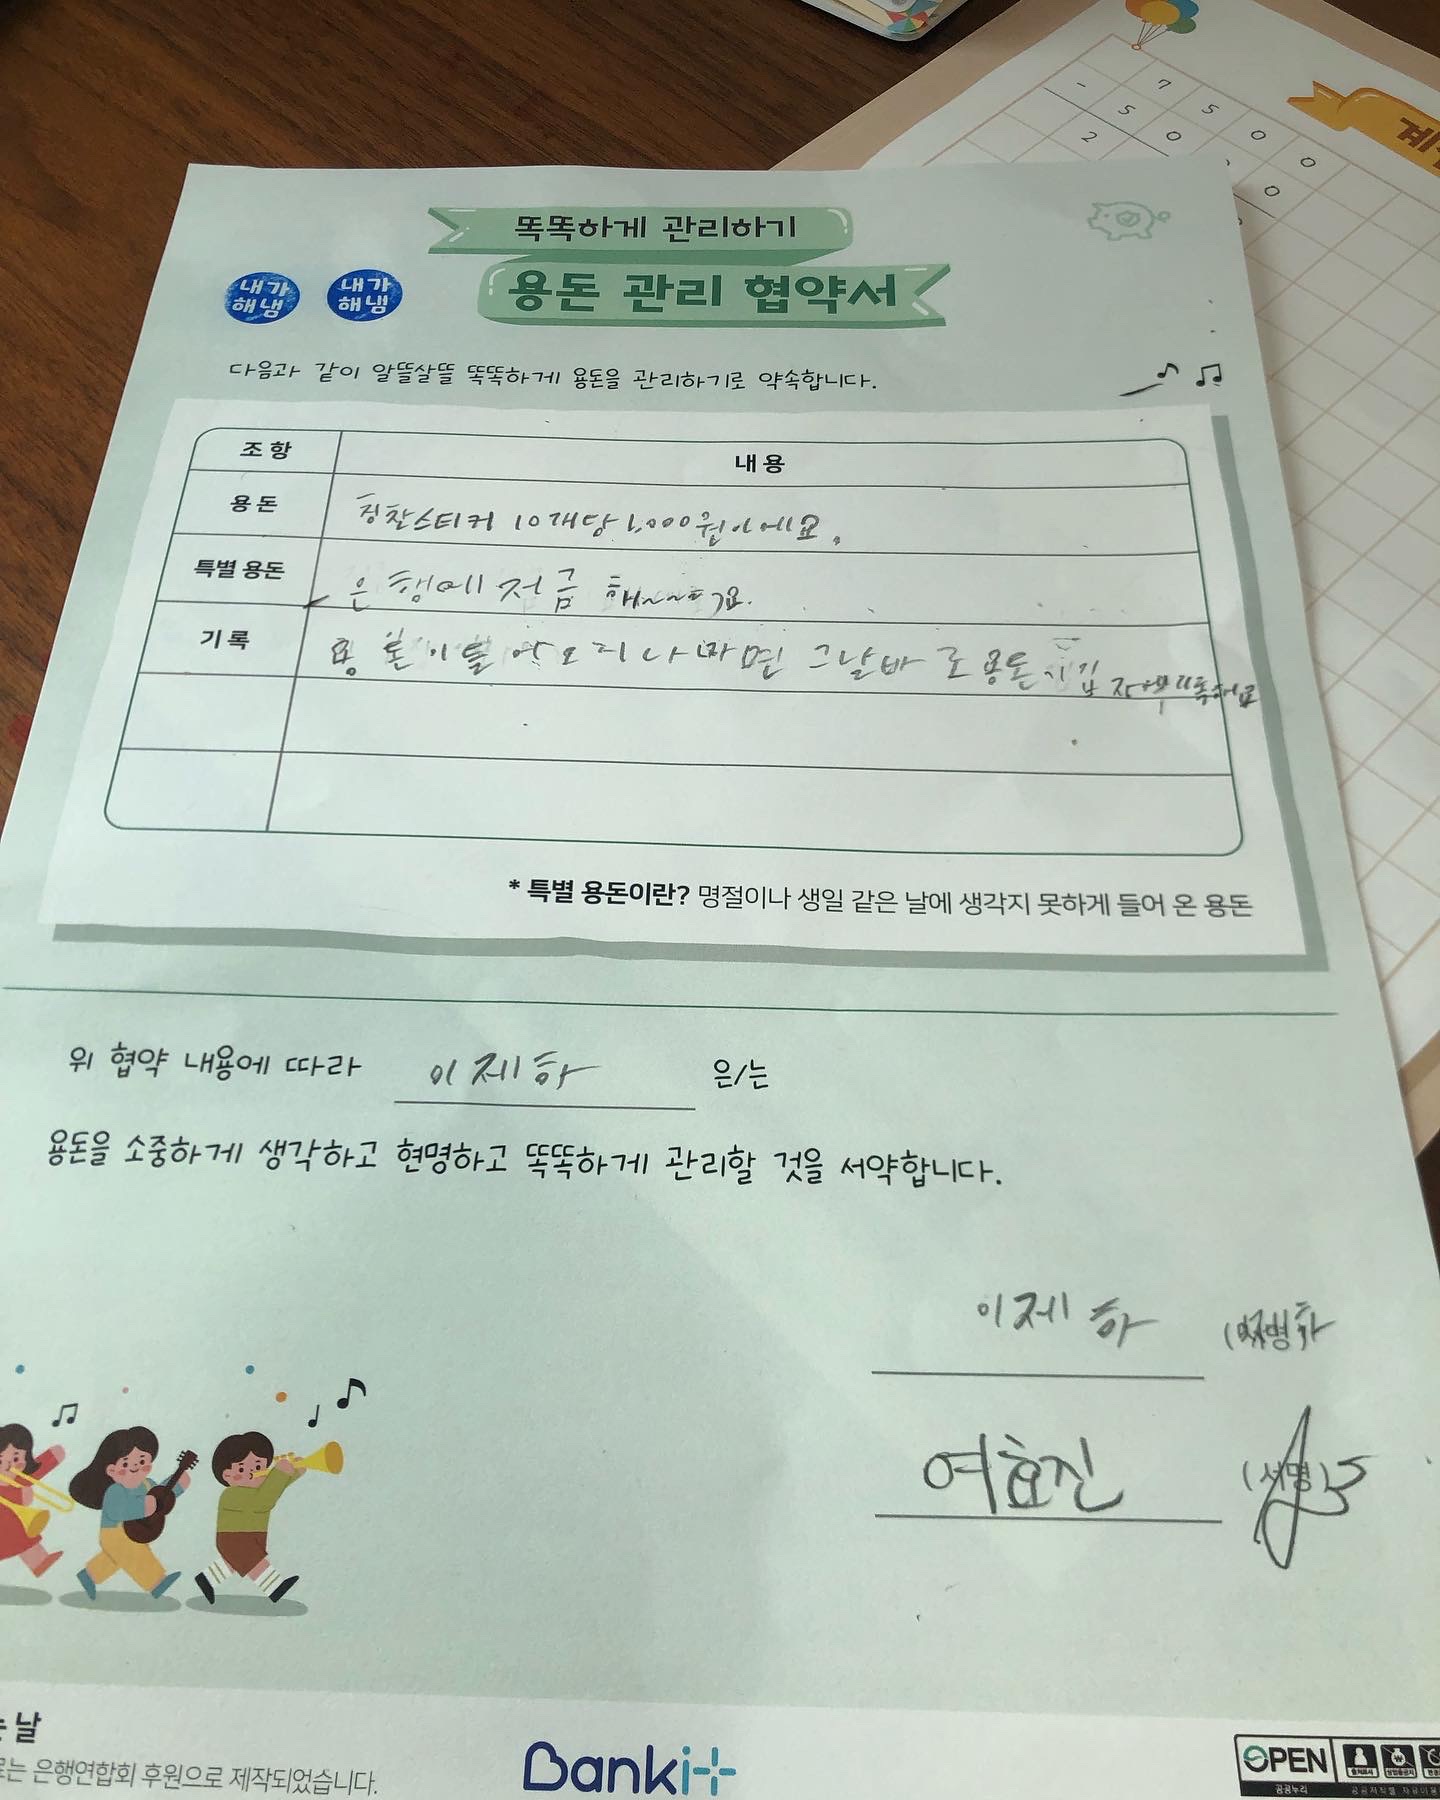 7 5 0 0
- 5 0 0
2 0
계
똑똑하게 관리하기
용돈 관리 협약서
내가 해냄
내가 해냄
다음과 같이 알뜰살뜰 똑똑하게 용돈을 관리하기로 약속합니다.
조항 내용
용돈 칭찬스티커 10개당 1,000원이에요.
특별 용돈 은행에 저금
기록 용돈이 들어오거나 쓰면 그날 바로 용돈
* 특별 용돈이란? 명절이나 생일 같은 날에 생각지 못하게 들어 온 용돈
위 협약 내용에 따라 이제하 은/는
용돈을 소중하게 생각하고 현명하고 똑똑하게 관리할 것을 서약합니다.
이제하 (서명)
여효진 (서명)
는 날
는 은행연합회 후원으로 제작되었습니다.
Banki+
OPEN
공공누리